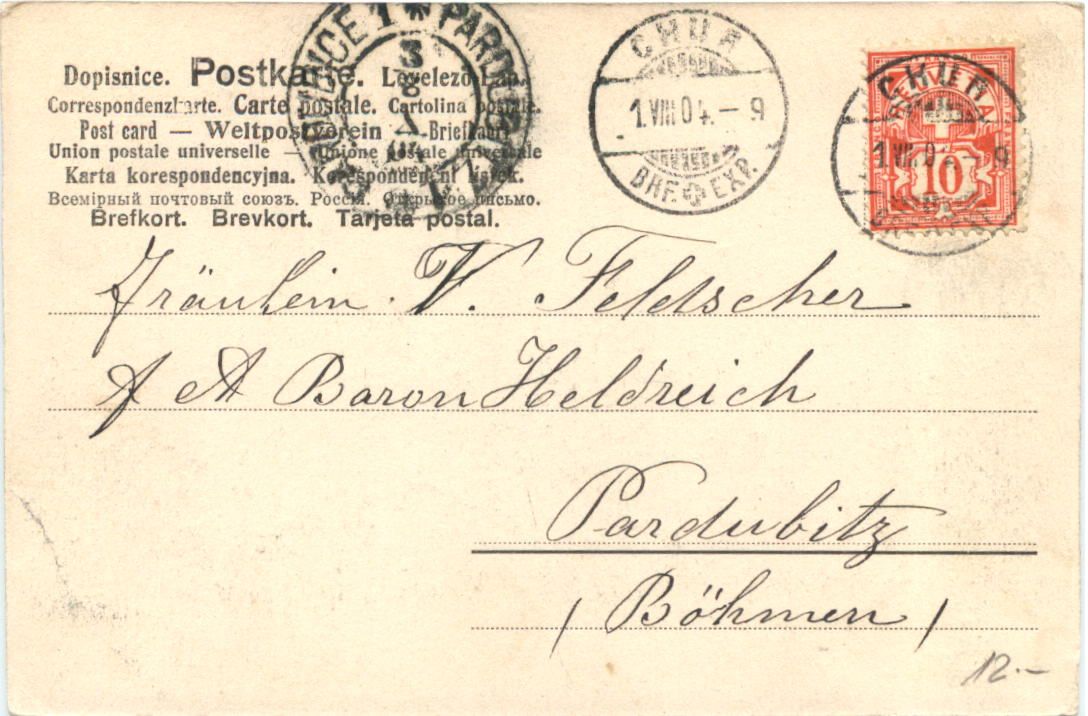 Dopisnice. Postkarte. Levelező-Lap.
Correspondenzkarte. Carte postale. Cartolina postale.
Post card — Weltpostverein — Briefkaart
Union postale universelle — Unione postale universale
Karta korespondencyjna. Korespondenční lístek.
Всемірный почтовый союзъ. Россія. Открытое письмо.
Brefkort. Brevkort. Tarjeta postal.
PARDUBICE 1 * PARDUBITZ
3
8
CHUR
1.VIII.04.–9
BHF. EXP.
CHUR
1.VIII.04.–9
HELVETIA
10
Fräulein V. Feldscher
Baron Heldreich
Pardubitz
(Böhmen)
12.–